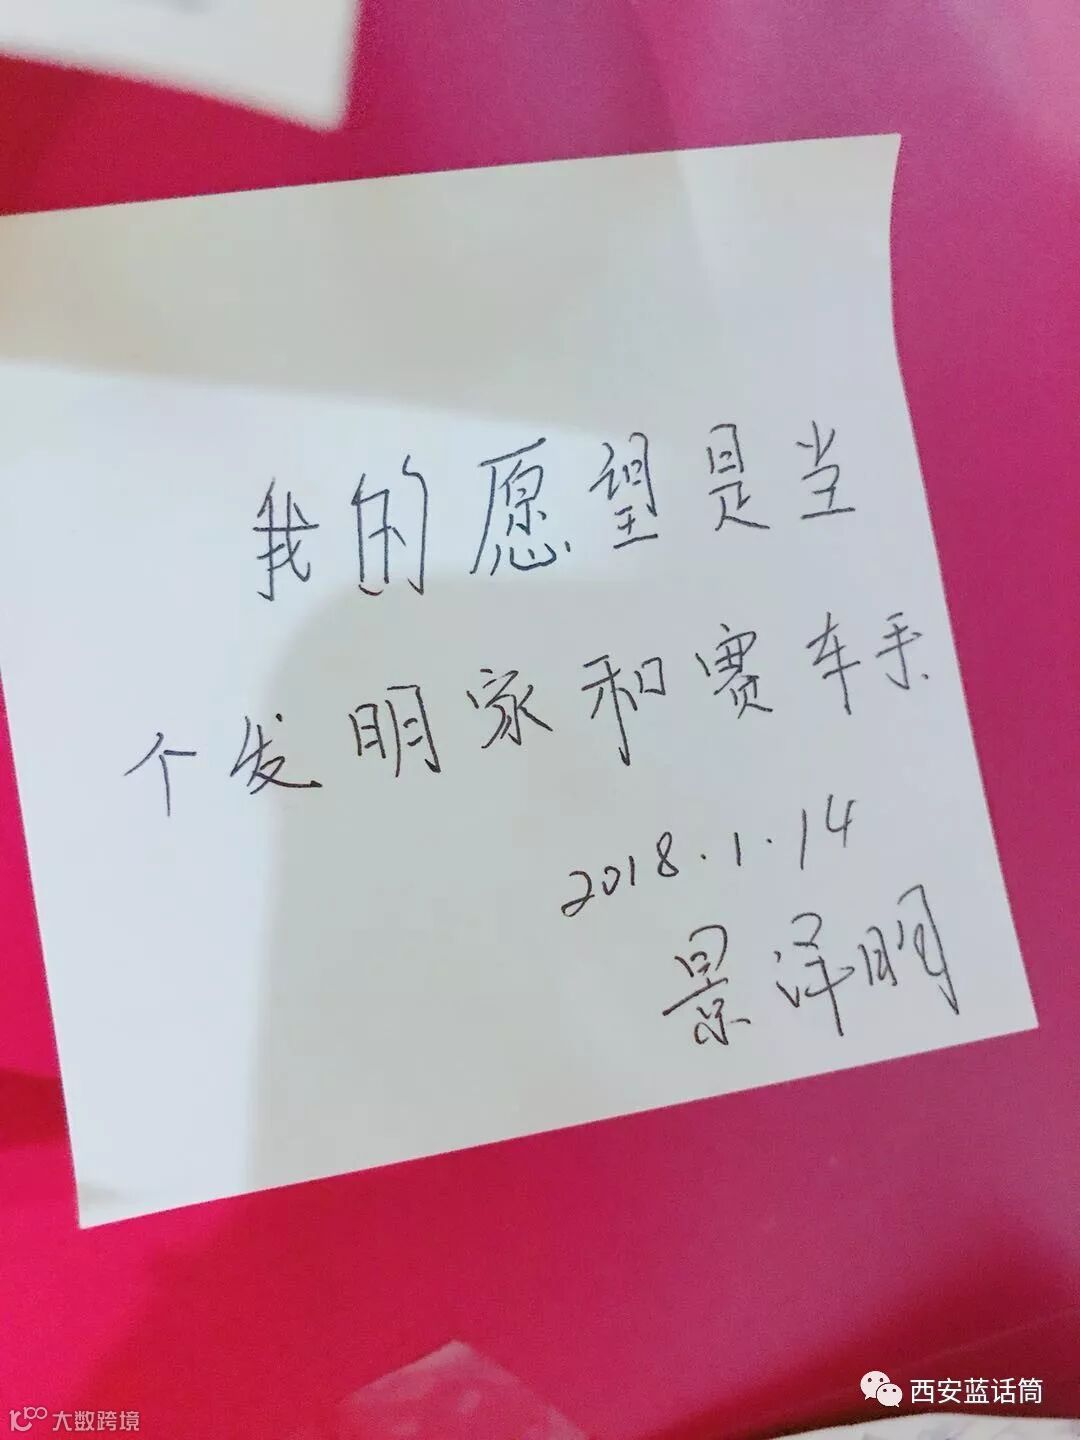 我的愿望是当
个发明家和赛车手.
2018.1.14
景泽明
西安蓝话筒
大数跨境